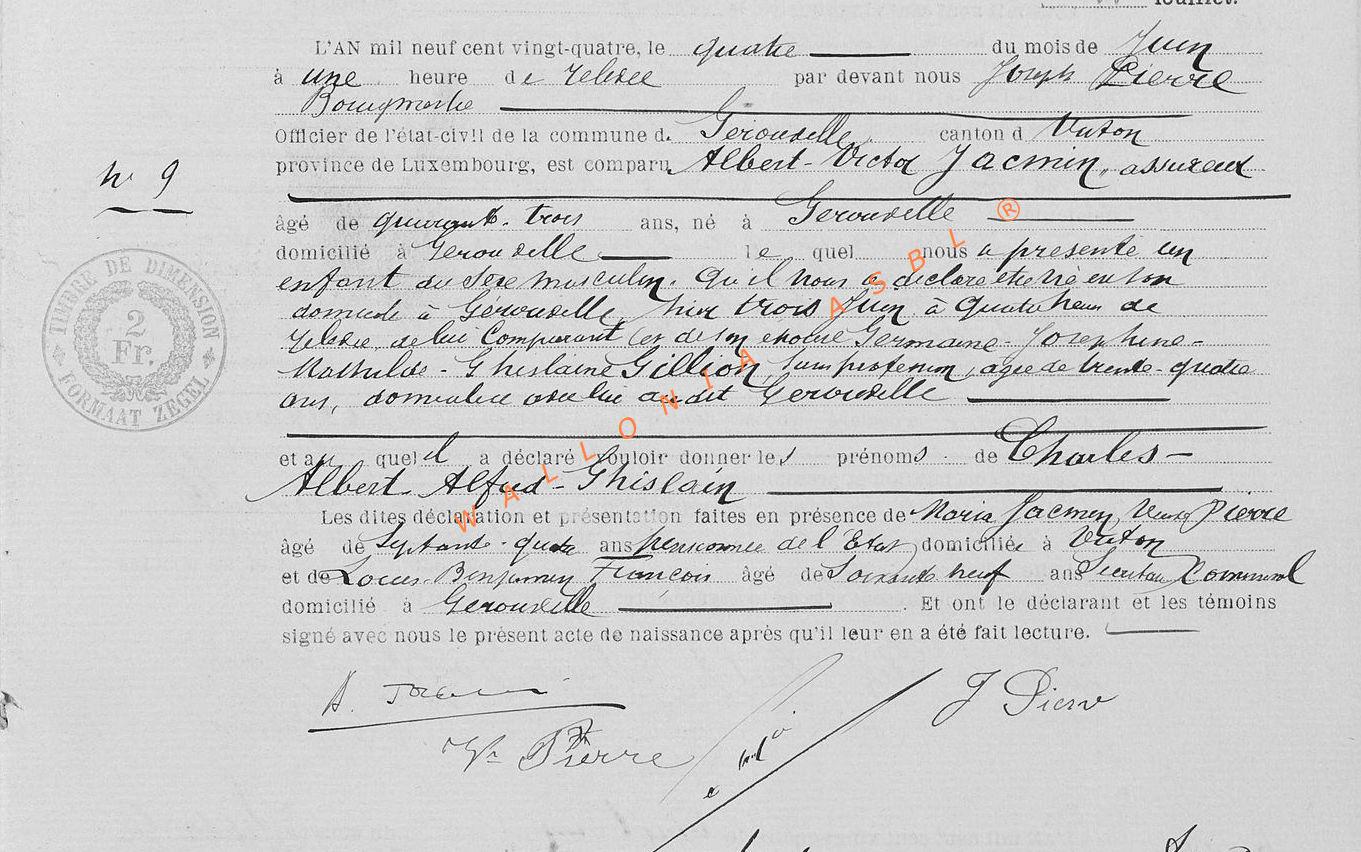 feuillet.
L'AN mil neuf cent vingt-quatre, le quatre du mois de Juin
à une heure de relevée par devant nous Joseph Pierre
Bourgmestre
Officier de l'état-civil de la commune d. Gérouville canton d Virton
province de Luxembourg, est comparu Albert-Victor Jacmin, assureur
N° 9
âgé de quarante-trois ans, né à Gérouville
domicilié à Gérouville le quel nous a présenté un
enfant du sexe masculin. Qu'il nous a déclaré être né en son
domicile à Gérouville, hier trois Juin à quatre heures de
relevée, de lui Comparant et de son épouse Germaine-Josephine-
Mathilde-Ghislaine Gillion, sans profession, agée de trente-quatre
ans, domiciliée avec lui au dit Gérouville
et au quel il a déclaré vouloir donner les prénoms de Charles-
Albert-Alfred-Ghislain
Les dites déclaration et présentation faites en présence de Maria Jacmin, Veuve Pierre
âgé de Septante-quatre ans pensionnée de l'Etat, domiciliée à Virton
et de Louis Benjamin François âgé de Soixante neuf ans Secrétaire Communal
domicilié à Gérouville . Et ont le déclarant et les témoins
signé avec nous le présent acte de naissance après qu'il leur en a été fait lecture.
A. Jacmin
J Pierre
Ve Pierre
TIMBRE DE DIMENSION
2
Fr.
FORMAAT ZEGEL
WALLONIA ASBL ®